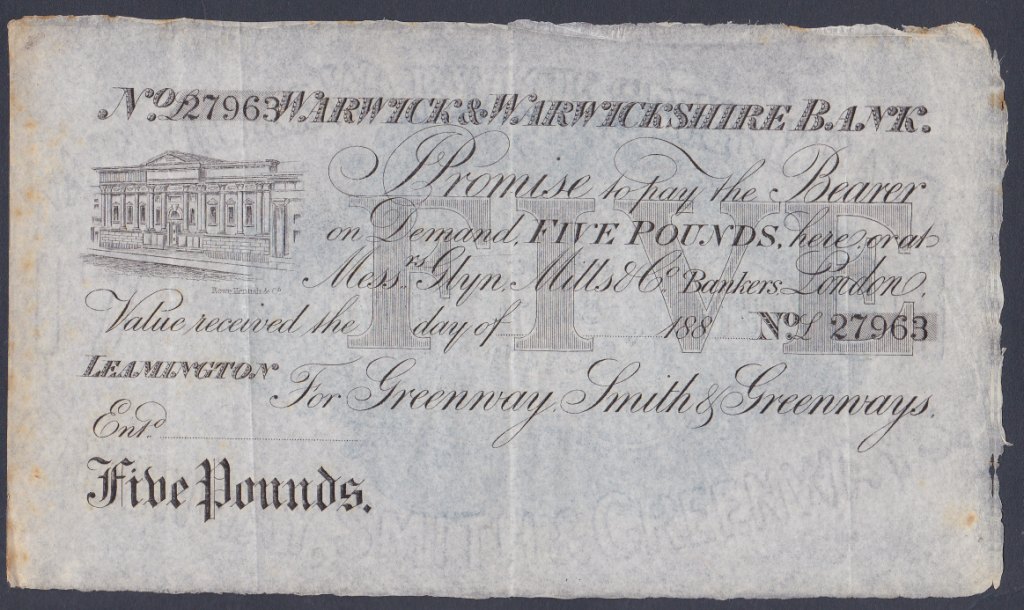 No. L27963 WARWICK & WARWICKSHIRE BANK.
I Promise to pay the Bearer
on Demand, FIVE POUNDS, here, or at
Messrs Glyn, Mills & Co Bankers London,
Value received the day of 188 No. L 27963
FIVE
LEAMINGTON
For Greenway, Smith & Greenways.
Entd
Five Pounds.